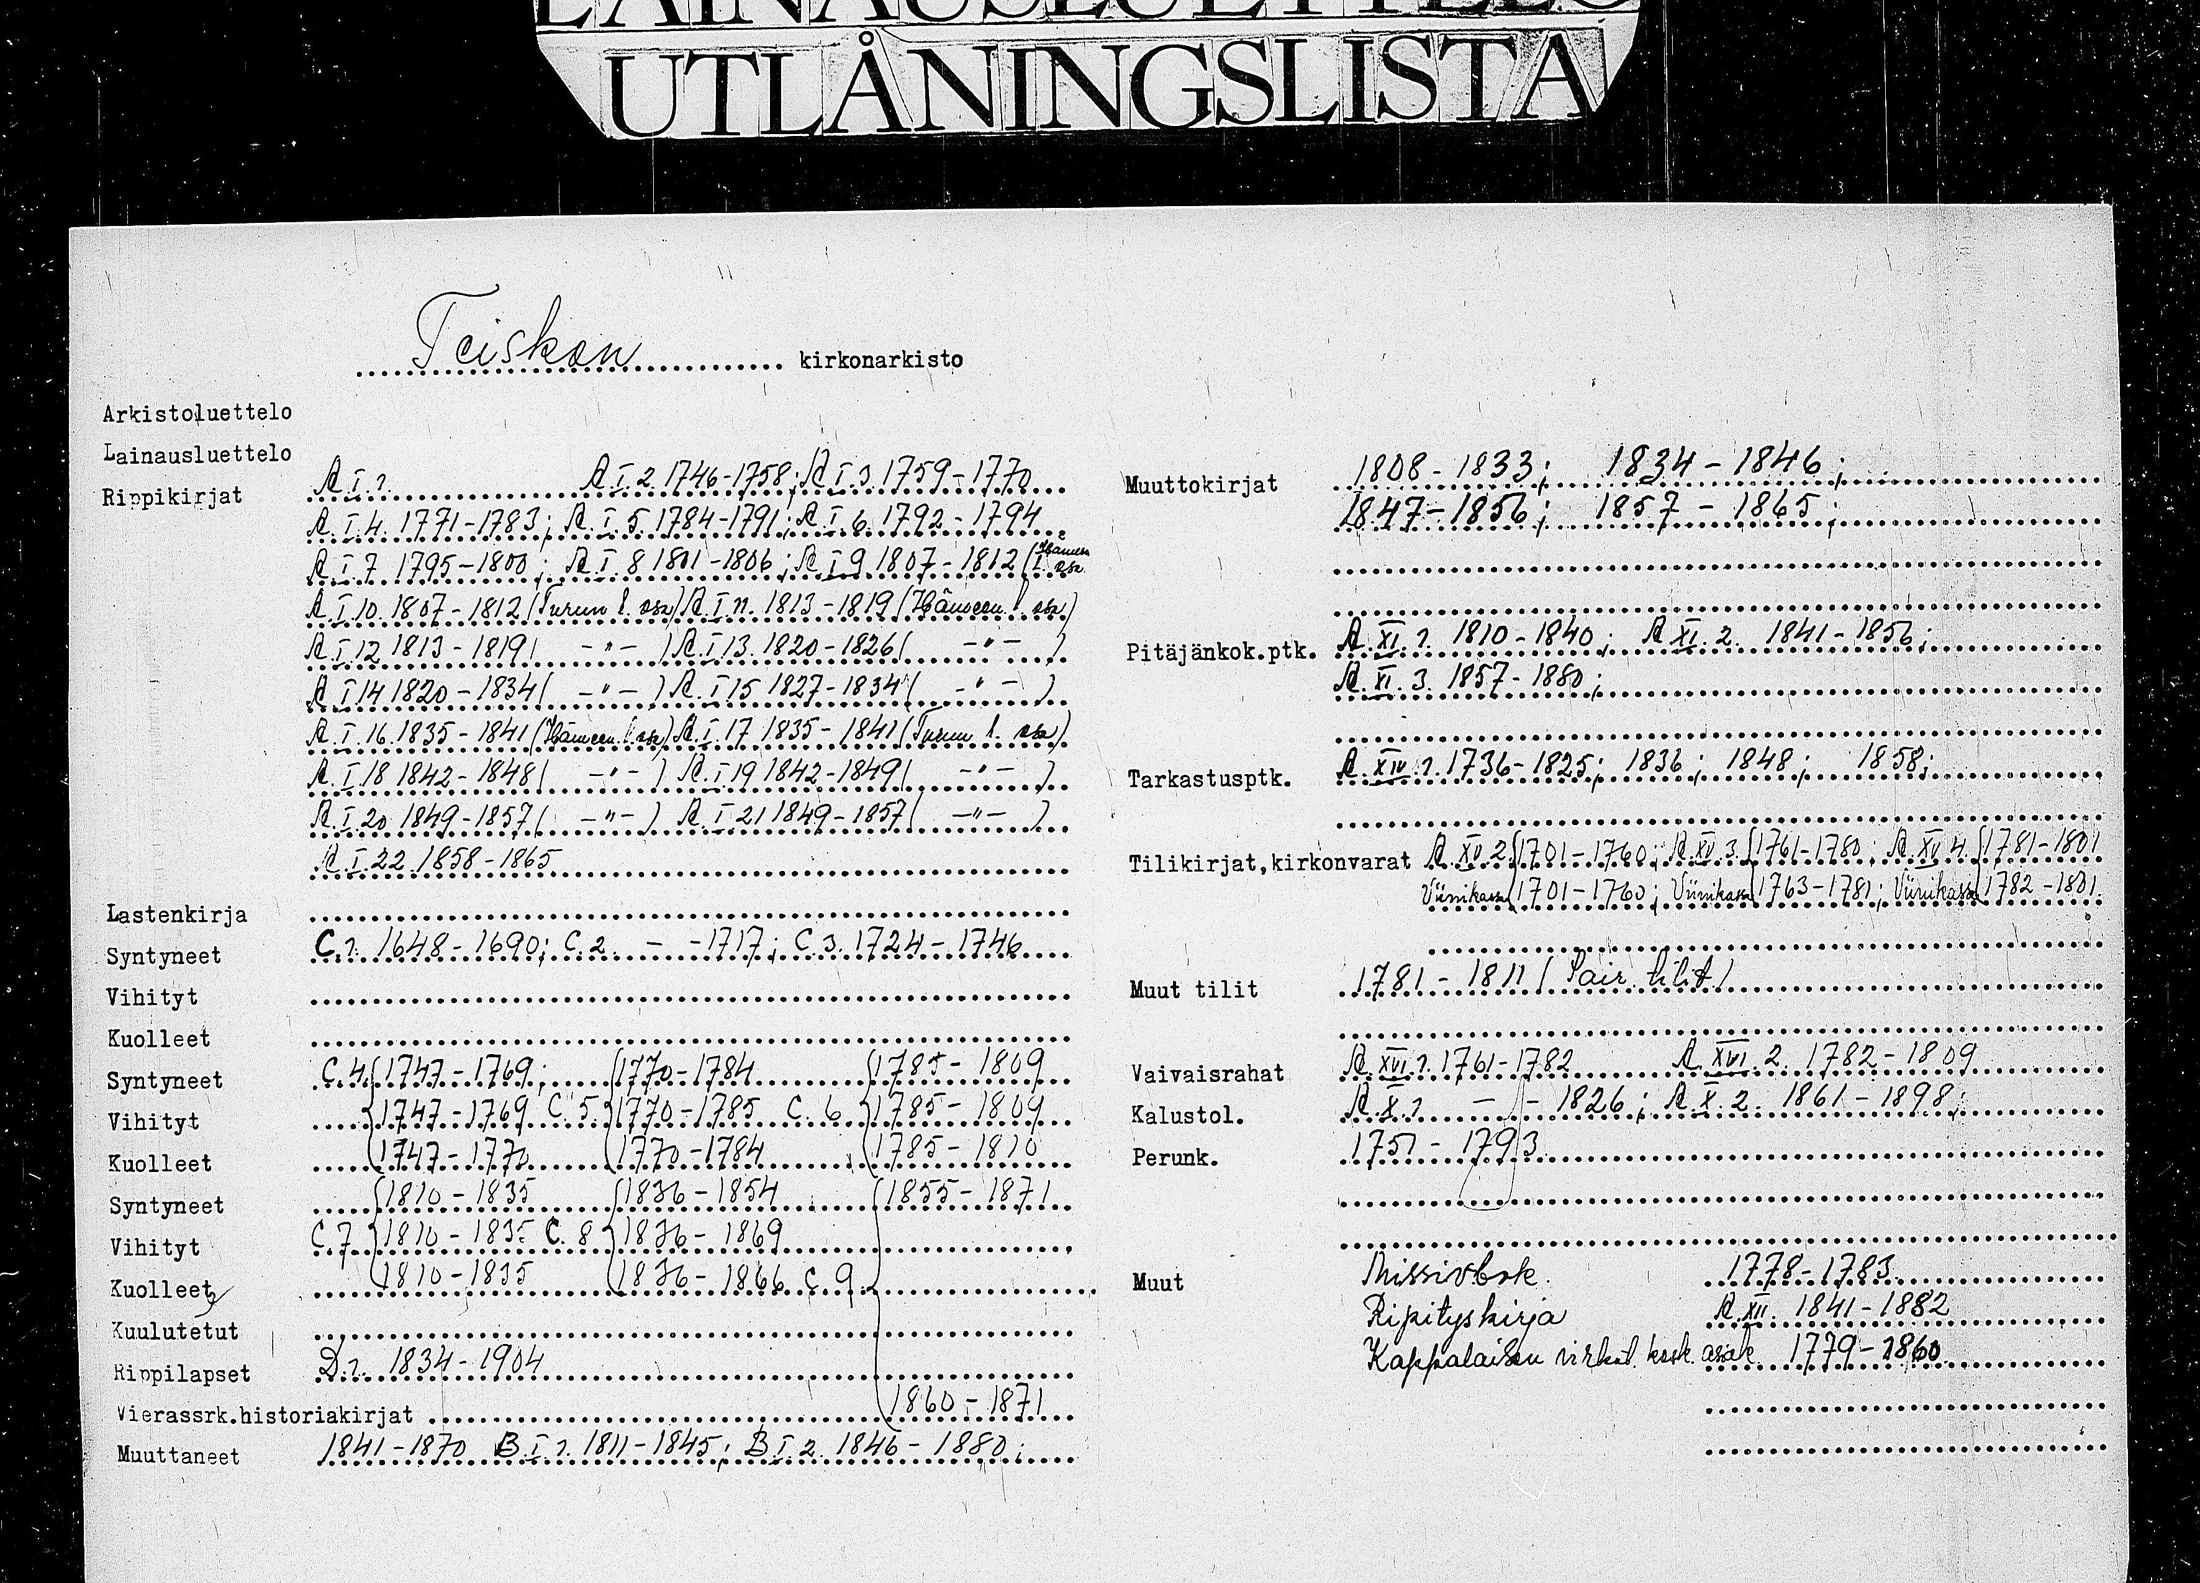 LAINAUSLUETTELO
UTLÅNINGSLISTA
Teiskon kirkonarkisto
Arkistoluettelo
Lainausluettelo
Rippikirjat A.I.1. A.I.2. 1746-1758; A.I.3. 1759-1770
A.I.4. 1771-1783; A.I.5. 1784-1791; A.I.6. 1792-1794
A.I.7 1795-1800; A.I.8 1801-1806; A.I.9 1807-1812 (Hämeen l. osa
A.I.10. 1807-1812 (Turun l. osa) A.I.11. 1813-1819 (Hämeen l. osa)
A.I.12 1813-1819 ( -"- ) A.I.13. 1820-1826 ( -"- )
A.I.14 1820-1834 ( -"- ) A.I.15 1827-1834 ( -"- )
A.I.16. 1835-1841 (Hämeen l. osa) A.I.17 1835-1841 (Turun l. osa)
A.I.18 1842-1848 ( -"- ) A.I.19 1842-1849 ( -"- )
A.I.20 1849-1857 ( -"- ) A.I.21 1849-1857 ( -"- )
A.I.22 1858-1865
Lastenkirja
Syntyneet C.1. 1648-1690; C.2. - -1717; C.3. 1724-1746
Vihityt
Kuolleet
Syntyneet C.4. 1747-1769; 1770-1784 1785-1809
Vihityt 1747-1769 C.5. 1770-1785 C.6. 1785-1809
Kuolleet 1747-1770 1770-1784 1785-1810
Syntyneet 1810-1835 1836-1854 1855-1871
Vihityt C.7 1810-1835 C.8 1836-1869
Kuolleet 1810-1835 1836-1866 C.9.
Kuulutetut
Rippilapset D.1. 1834-1904
Vierassrk.historiakirjat 1860-1871
Muuttaneet 1841-1870 B.I.1. 1811-1845; B.I.2. 1846-1880;
Muuttokirjat 1808-1833; 1834-1846;
1847-1856; 1857-1865;
Pitäjänkok.ptk. A.XI.1. 1810-1840; A.XI.2. 1841-1856;
A.XI.3. 1857-1880;
Tarkastusptk. A.XIV.1. 1736-1825; 1836; 1848; 1858;
Tilikirjat,kirkonvarat A.XV.2. 1701-1760; A.XV.3. 1761-1780; A.XV.4. 1781-1801
Viinikassa 1701-1760; Viinikassa 1763-1781; Viinikassa 1782-1801.
Muut tilit 1781-1811 (Sair. tilit)
Vaivaisrahat A.XVI.1. 1761-1782 A.XVI.2. 1782-1809
Kalustol. A.X.1. - - 1826; A.X.2. 1861-1898;
Perunk. 1751-1793
Muut Missivbok. 1778-1783
Ripityskirja A.XII. 1841-1882
Kappalaisen virkat. kosk. asiak. 1779-1860